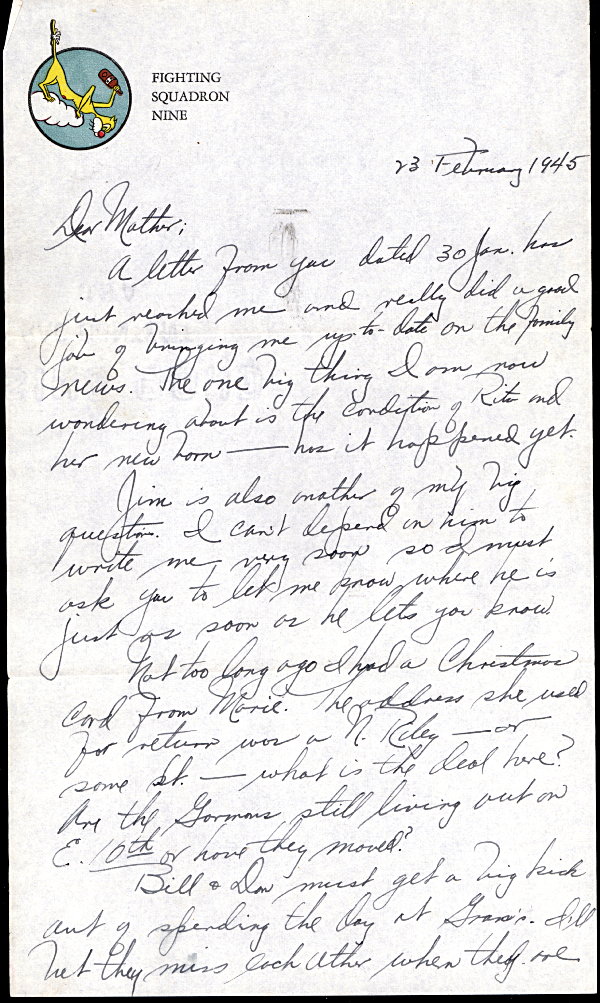 FIGHTING
SQUADRON
NINE
23 February 1945
Dear Mother;
A letter from you dated 30 Jan. has
just reached me and really did a good
job of bringing me up-to-date on the family
news. The one big thing I am now
wondering about is the condition of Rita and
her new born — has it happened yet.
Jim is also another of my big
questions. I can't depend on him to
write me very soon so I must
ask you to let me know where he is
just as soon as he lets you know.
Not too long ago I had a Christmas
card from Marie. The address she used
for return was a N. Riley — or
some St. — what is the deal here?
Are the Gormans still living out on
E. 10th or have they moved?
Bill & Dan must get a big kick
out of spending the day at Gram's. I'll
bet they miss each other when they are